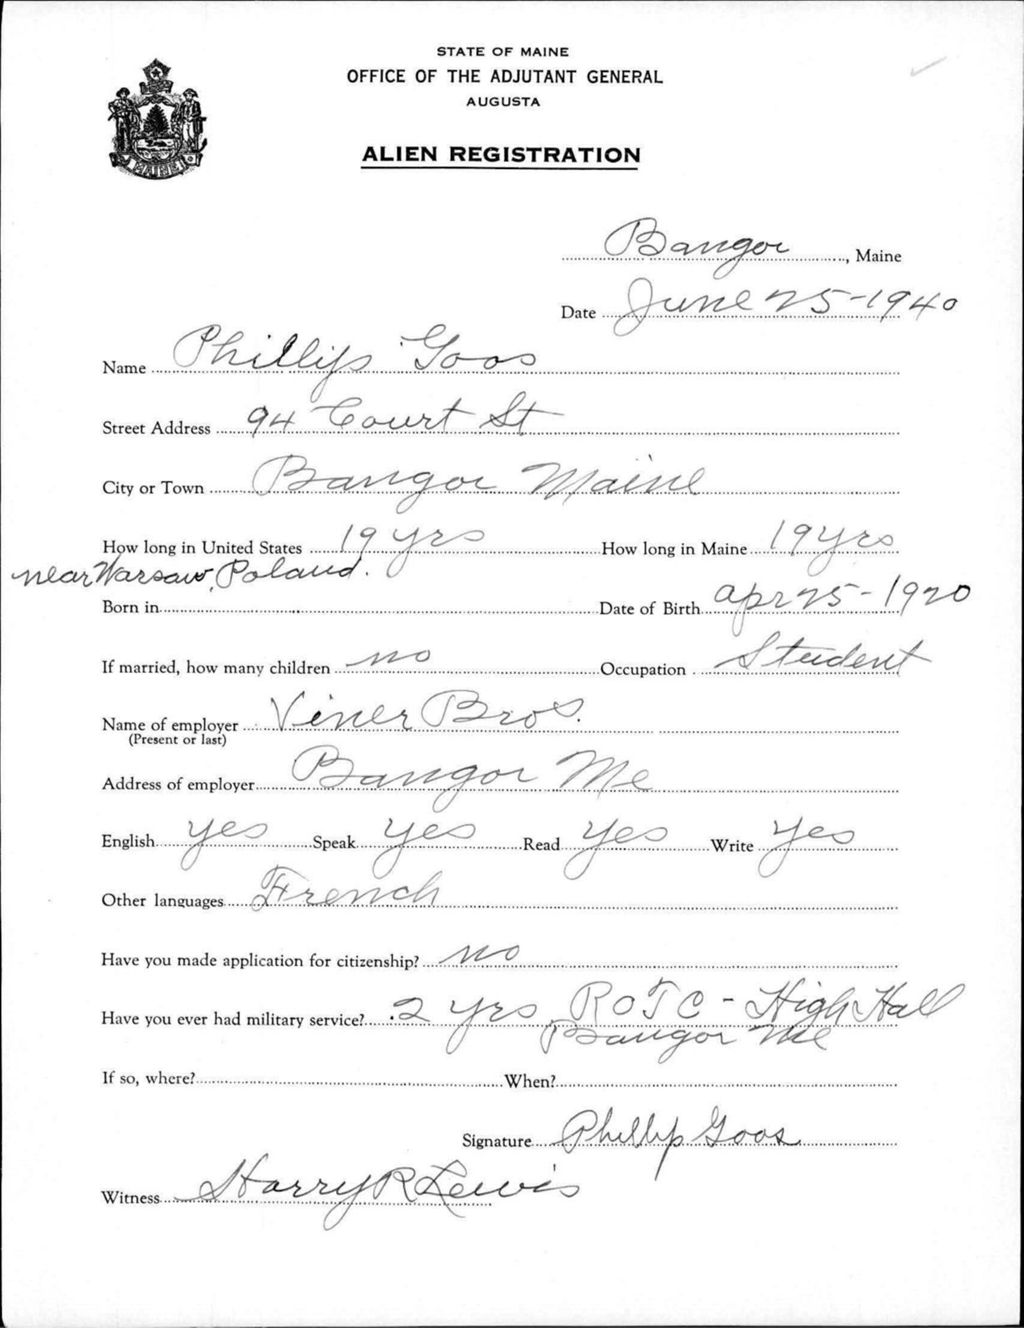 STATE OF MAINE
OFFICE OF THE ADJUTANT GENERAL
AUGUSTA
ALIEN REGISTRATION
MAINE
Bangor, Maine
Date June 25-1940
Name Phillip Goos
Street Address 94 Court St
City or Town Bangor Maine
How long in United States 19 yrs How long in Maine 19 yrs
near Warsaw, Poland.
Born in Date of Birth Apr 25-1920
If married, how many children no Occupation Student
Name of employer Viner Bros.
(Present or last)
Address of employer Bangor Me
English yes Speak yes Read yes Write yes
Other languages French
Have you made application for citizenship? no
Have you ever had military service? 2 yrs ROTC - High Hall
Bangor Me
If so, where? When?
Signature Phillip Goos
Witness Harry R Lewis